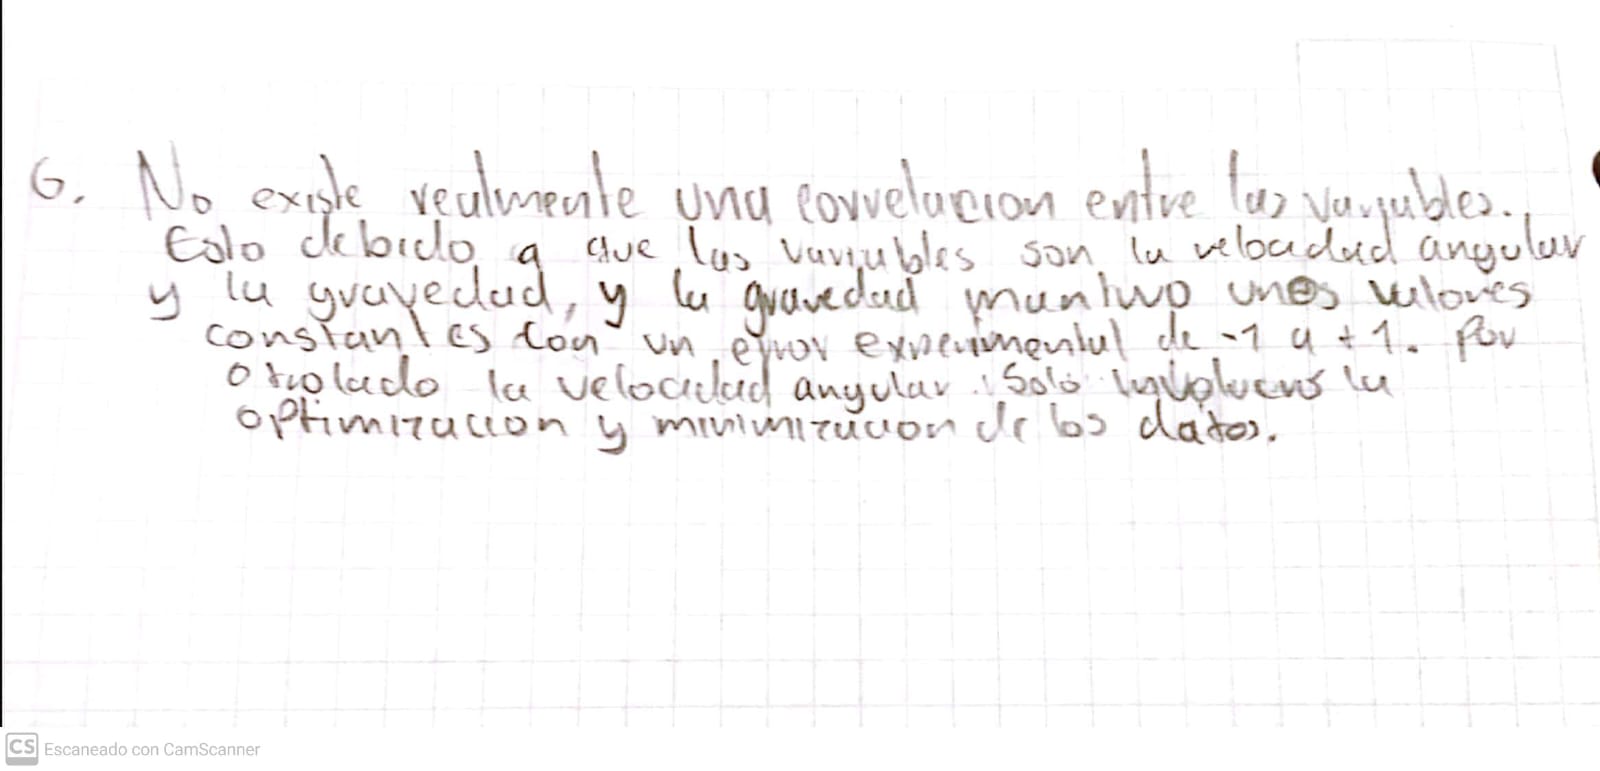 6. No existe realmente una correlacion entre las variables.
Esto debido a que las variables son la velocidad angular
y la gravedad, y la gravedad mantuvo unos valores
constantes con un error experimental de -1 a +1. Por
otro lado la velocidad angular solo involucra la
optimizacion y minimizacion de los datos.
CS Escaneado con CamScanner